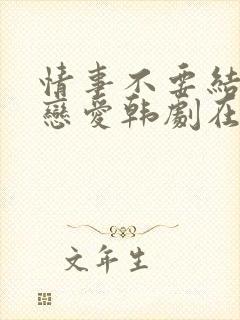 情事不要結
戀愛韩劇在
文年生